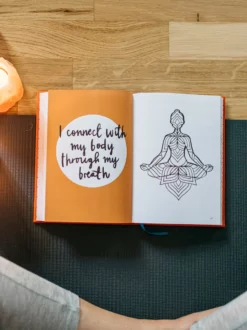 I connect with
my body
through my
breath